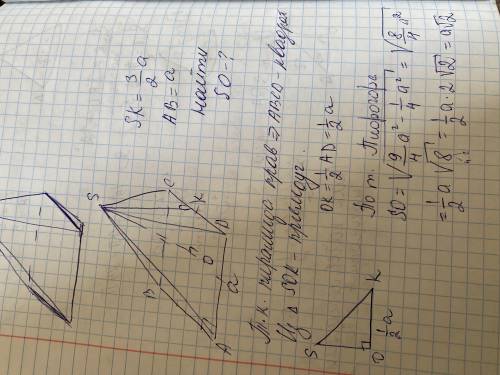 SK = 3/2 a
AB = a
Найти
SO - ?
S
B
C
K
D
O
A
a
Т.к. пирамида прав ⇒ ABCD - квадрат
Из Δ SOK - прямоуг.
OK = 1/2 AD = 1/2 a
S
O
K
1/2 a
По т. Пифагора
SO = √(9/4 a² - 1/4 a²) = √(8/4 a²)
= 1/2 a √8 = 1/2 a · 2√2 = a√2